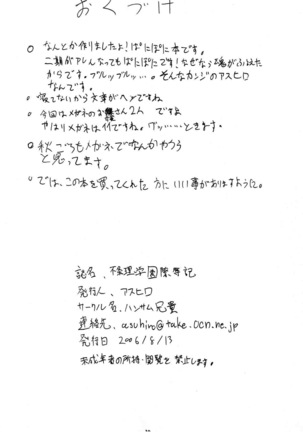 おくづけ
○なんとか作りましたよ!ぱにぽに本です。
二期がアレしなってもぱにぽにです!なぜなら魂がふるえた
からです。ブルッブルッ…。そんなカンジのアスヒロ
なんです。
○寝てないから文章がヘンですね
○今回はメガネのお さん2人ですよ
やはりメガネは ですね。グッ……ときます。
○秋ごろもメガネでなんかやろう
と思ってます。
○では、この本を買ってくれた方にいい事がありますように。
誌名、不条理学園 記
発行人、アスヒロ
サークル名、ハンサム兄貴
連絡先、asuhiro@take.ocn.ne.jp
発行日 2006/8/13
未成年者の所持・閲覧を禁止します。